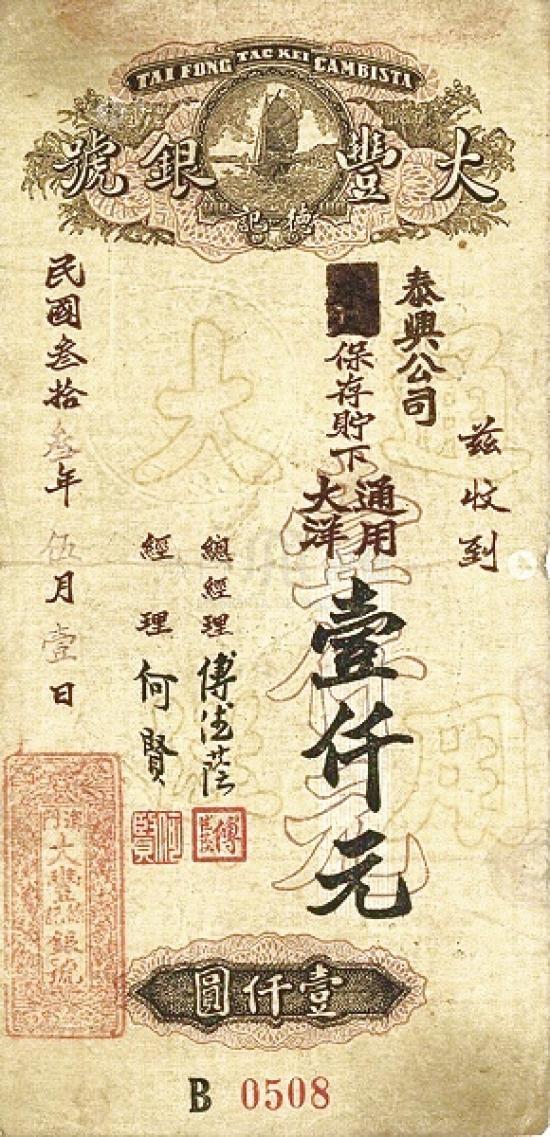 TAI FUNG TAC KEI CAMBISTA
大豐銀號
德記
茲收到
泰興公司
保存貯下
通用
大洋
壹仟元
總經理 傅德蔭
經理 何賢
民國叁拾叁年伍月壹日
傅
何賢
大豐
銀號
壹仟圓
B 0508
大
通
用